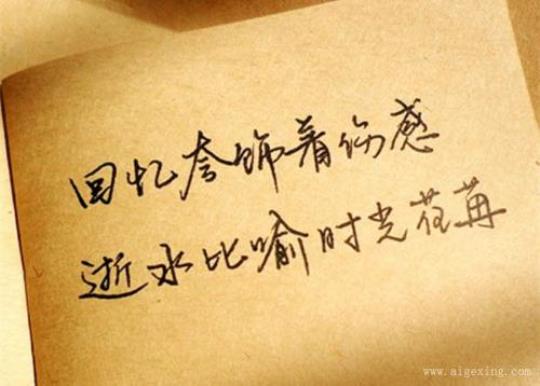 回忆夸饰着伤感
逝水比喻时光荏苒
www.aigexing.com